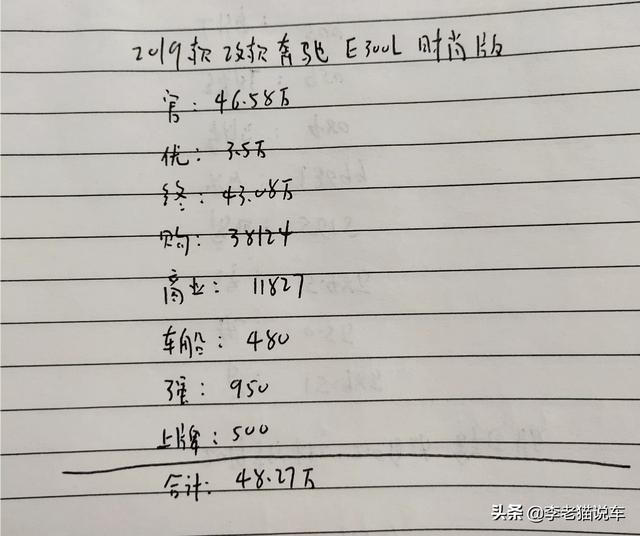 2019款 改款奔驰 E300L 时尚版
官: 46.58万
优: 3.5万
终: 43.08万
购: 38124
商业: 11827
车船: 480
强: 950
上牌: 500
合计: 48.27万
头条 @李老猫说车